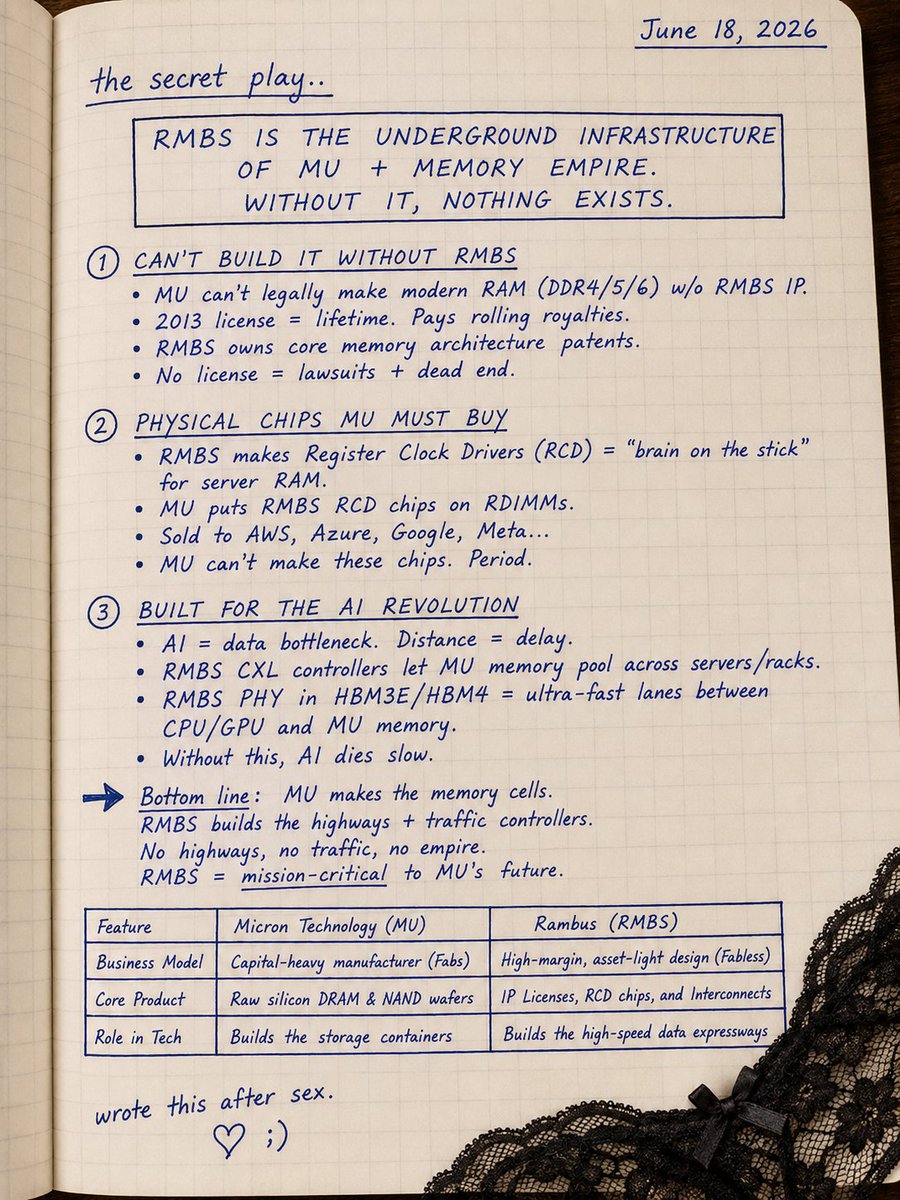 June 18, 2026
the secret play..
RMBS IS THE UNDERGROUND INFRASTRUCTURE
OF MU + MEMORY EMPIRE.
WITHOUT IT, NOTHING EXISTS.
① CAN'T BUILD IT WITHOUT RMBS
• MU can't legally make modern RAM (DDR4/5/6) w/o RMBS IP.
• 2013 license = lifetime. Pays rolling royalties.
• RMBS owns core memory architecture patents.
• No license = lawsuits + dead end.
② PHYSICAL CHIPS MU MUST BUY
• RMBS makes Register Clock Drivers (RCD) = "brain on the stick"
for server RAM.
• MU puts RMBS RCD chips on RDIMMs.
• Sold to AWS, Azure, Google, Meta...
• MU can't make these chips. Period.
③ BUILT FOR THE AI REVOLUTION
• AI = data bottleneck. Distance = delay.
• RMBS CXL controllers let MU memory pool across servers/racks.
• RMBS PHY in HBM3E/HBM4 = ultra-fast lanes between
CPU/GPU and MU memory.
• Without this, AI dies slow.
→ Bottom line: MU makes the memory cells.
RMBS builds the highways + traffic controllers.
No highways, no traffic, no empire.
RMBS = mission-critical to MU's future.
Feature Micron Technology (MU) Rambus (RMBS)
Business Model Capital-heavy manufacturer (Fabs) High-margin, asset-light design (Fabless)
Core Product Raw silicon DRAM & NAND wafers IP Licenses, RCD chips, and Interconnects
Role in Tech Builds the storage containers Builds the high-speed data expressways
wrote this after sex.
♡ ;)